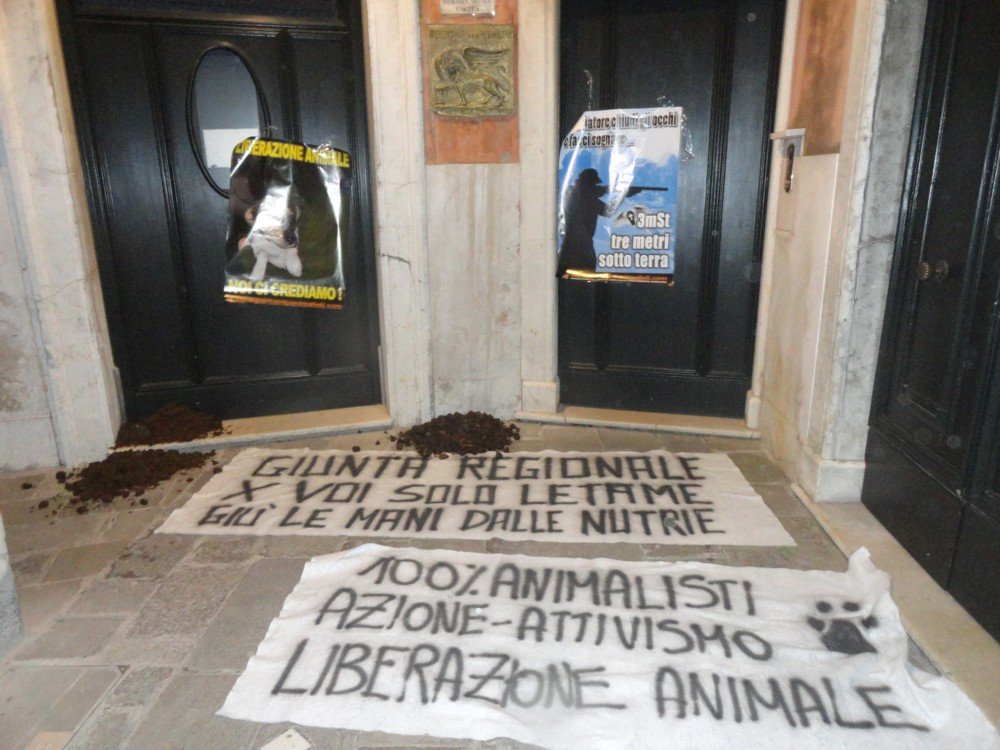 LIBERAZIONE ANIMALE
NOI CI CREDIAMO!
REGIONE
chiudi gli occhi
e facci sognare...
3mSt
tre metri
sotto terra
GIUNTA REGIONALE
X VOI SOLO LETAME
GIÙ LE MANI DALLE NUTRIE
100% ANIMALISTI
AZIONE-ATTIVISMO
LIBERAZIONE ANIMALE